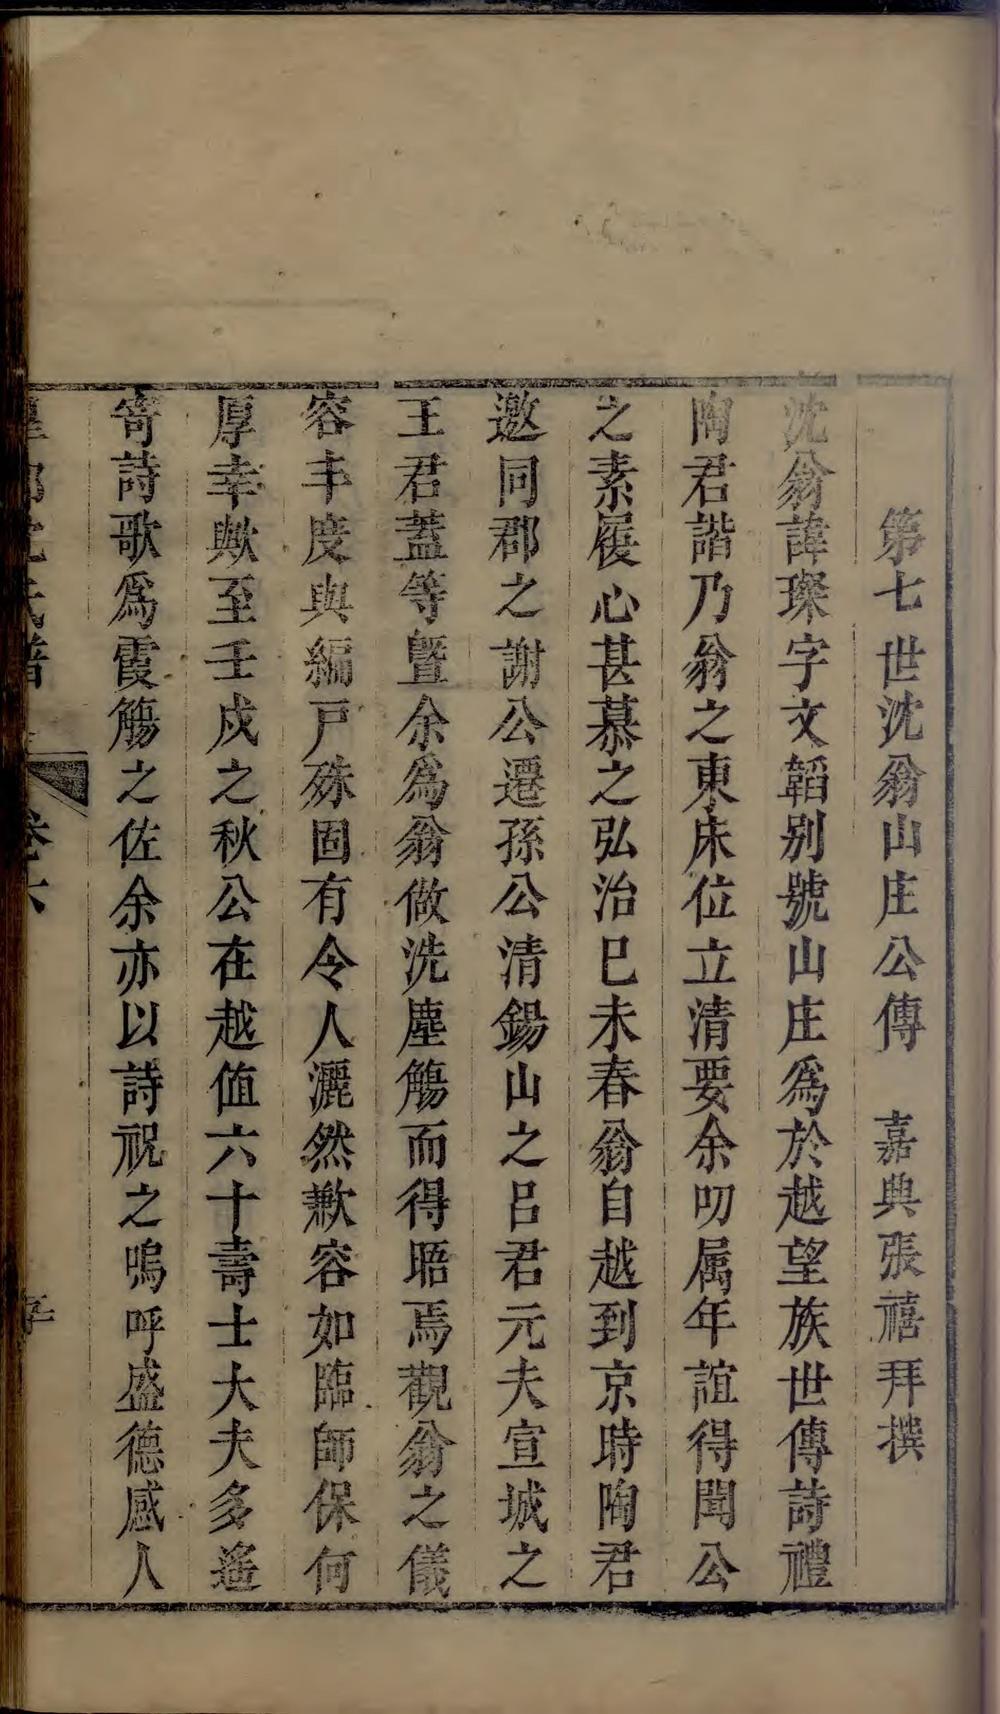 第七世沈翁山庄公傳　嘉典張禧拜撰
沈翁諱璨字文韜别號山庄爲於越望族世傳詩禮
陶君諧乃翁之東床位立清要余叨属年誼得聞公
之素履心甚慕之弘治巳未春翁自越到京時陶君
邀同郡之謝公遷孫公清錫山之呂君元夫宣城之
王君蓋等曁余爲翁做洗塵觴而得晤焉觀翁之儀
容丰度與編戸殊固有令人灑然歉容如臨師保何
厚幸歟至壬戍之秋公在越值六十壽士大夫多遙
寄詩歌爲霞觴之佐余亦以詩祝之嗚呼盛德感人
沈氏譜　卷六